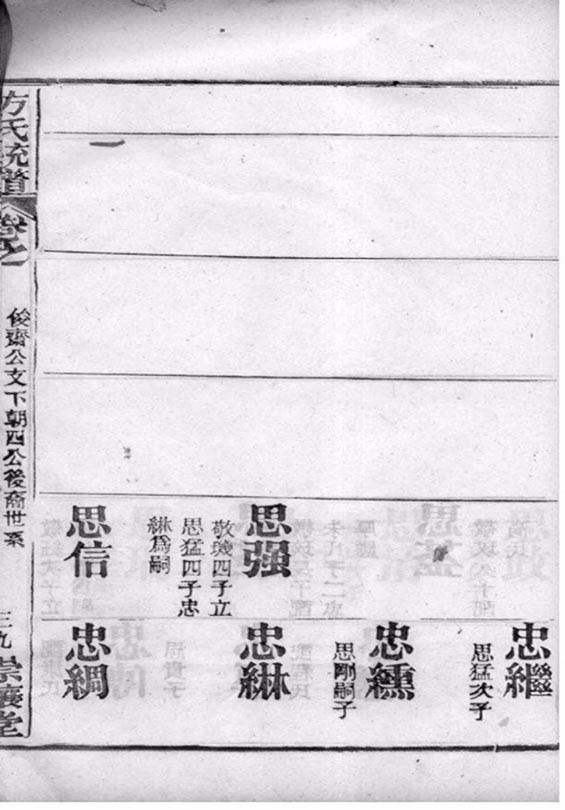 思强
敬璣四子立
思猛四子忠
綝爲嗣
思信
忠繼
思猛次子
忠纁
思剛嗣子
忠綝
忠綢
方氏統譜
卷之
俊齋公文下朝四公後裔世系
三九
崇讓堂